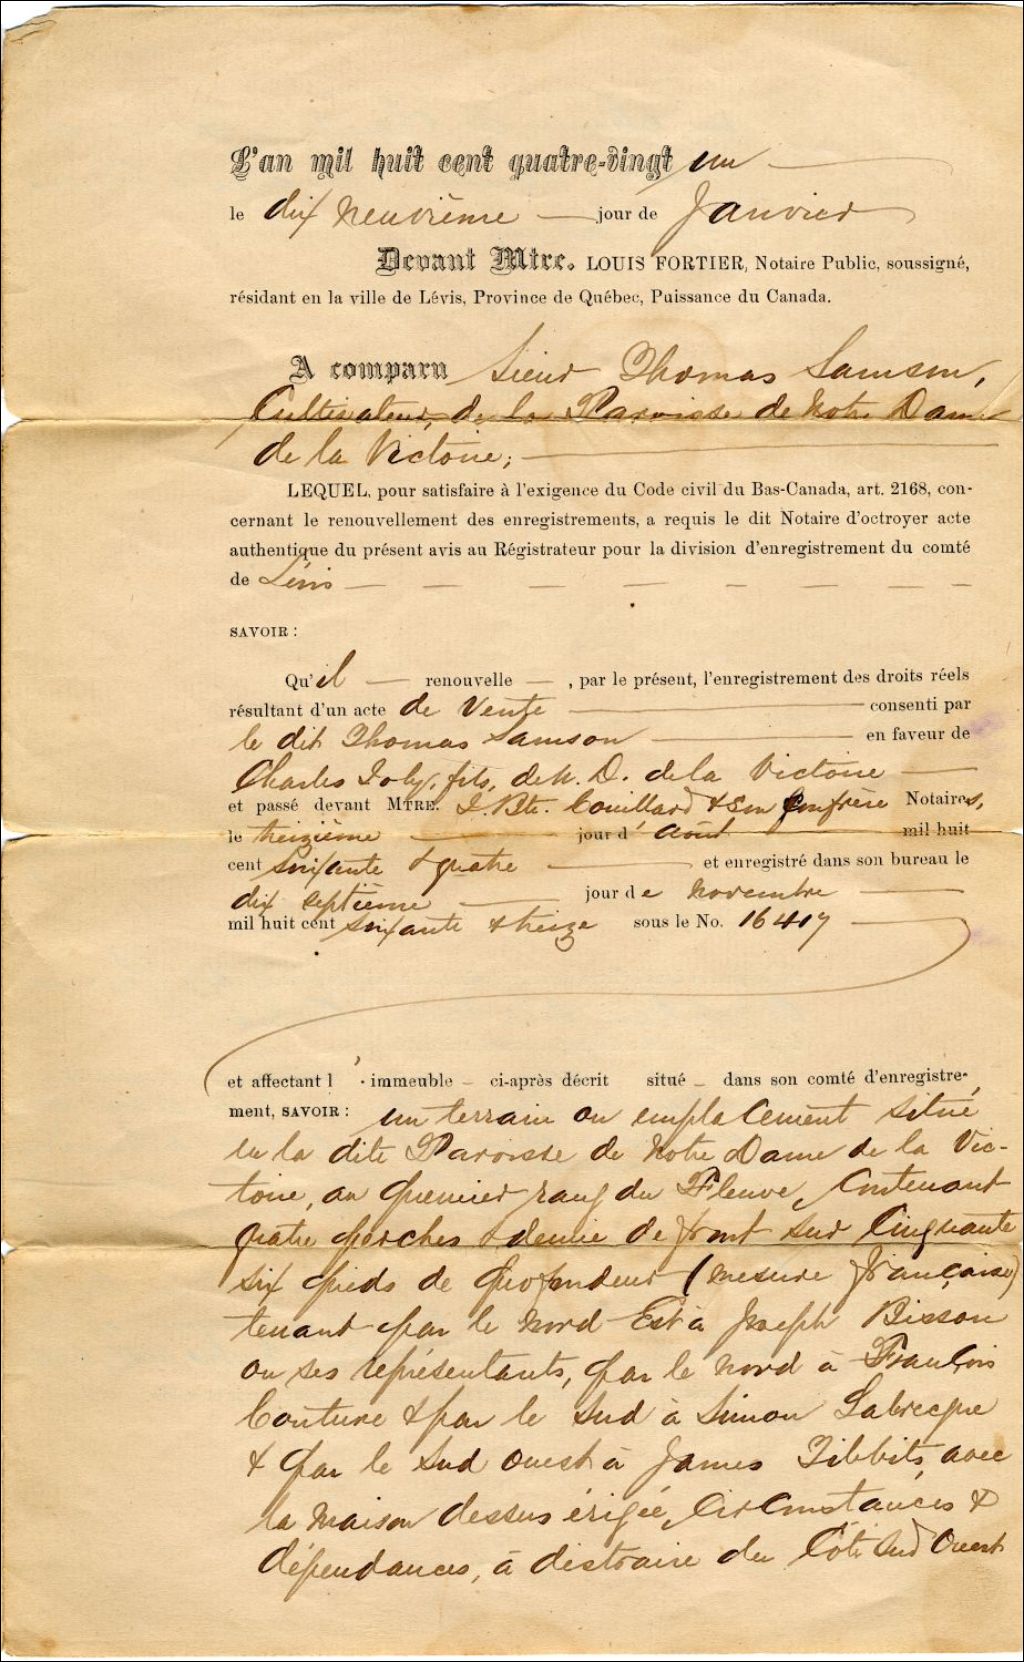 L'an mil huit cent quatre-vingt un
le dix neuvième jour de Janvier
Devant Mtre. LOUIS FORTIER, Notaire Public, soussigné,
résidant en la ville de Lévis, Province de Québec, Puissance du Canada.
A comparu Sieur Thomas Samson,
Cultivateur, de la Paroisse de Notre Dame
de la Victoire;
LEQUEL, pour satisfaire à l'exigence du Code civil du Bas-Canada, art. 2168, con-
cernant le renouvellement des enregistrements, a requis le dit Notaire d'octroyer acte
authentique du présent avis au Régistrateur pour la division d'enregistrement du comté
de Lévis
SAVOIR :
Qu'il renouvelle , par le présent, l'enregistrement des droits réels
résultant d'un acte de Vente consenti par
le dit Thomas Samson en faveur de
Charles Joly, fils, de N. D. de la Victoire
et passé devant MTRE. J. Bte. Couillard & son Confrère Notaires,
le treizième jour d'août mil huit
cent soixante & quatre et enregistré dans son bureau le
dix septième jour de novembre
mil huit cent soixante & treize sous le No. 16417
et affectant l'immeuble ci-après décrit situé dans son comté d'enregistre-
ment, SAVOIR : un terrain ou emplacement situé
en la dite Paroisse de Notre Dame de la Vic-
toire, au premier rang du Fleuve, Contenant
quatre perches & demie de front sur Cinquante
six pieds de profondeur (mesure française)
tenant par le Nord Est à Joseph Bisson
ou ses représentants, par le nord à François
Couture & par le Sud à Simon Labrecque
& par le Sud ouest à James Tibbits, avec
la maison dessus érigée, Circonstances &
dépendances, à distraire du Côté Sud Ouest